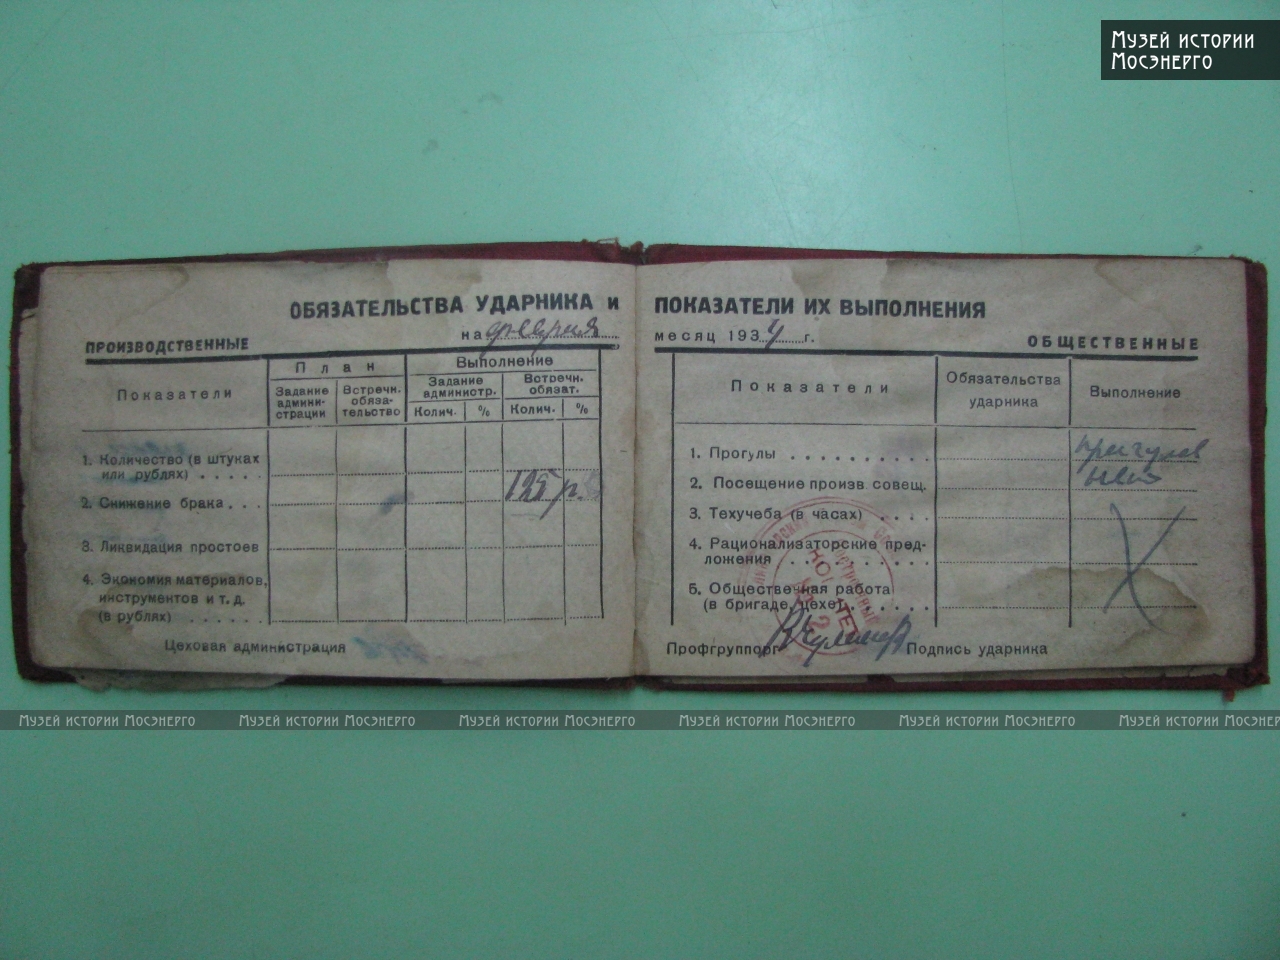 Музей истории
Мосэнерго
ОБЯЗАТЕЛЬСТВА УДАРНИКА и
на февраля
ПРОИЗВОДСТВЕННЫЕ
Показатели
План
Выполнение
Задание админи-страции
Встречн. обяза-тельство
Задание администр.
Встречн. обязат.
Колич.
%
Колич.
%
1. Количество (в штуках
или рублях) . . . . .
125 р.
2. Снижение брака . . .
3. Ликвидация простоев
4. Экономия материалов,
инструментов и т. д.
(в рублях) . . . . . .
Цеховая администрация
ПОКАЗАТЕЛИ ИХ ВЫПОЛНЕНИЯ
месяц 1934 г.
ОБЩЕСТВЕННЫЕ
Показатели
Обязательства
ударника
Выполнение
1. Прогулы . . . . . . . . . .
прогулов
нет
2. Посещение произв. совещ.
3. Техучеба (в часах) . . . .
4. Рационализаторские пред-
ложения . . . . . . . . . .
5. Общественная работа
(в бригаде, цехе) . . . . . .
Профгруппорг
Подпись ударника
Музей истории Мосэнерго Музей истории Мосэнерго Музей истории Мосэнерго Музей истории Мосэнерго Музей истории Мосэнерго Музей истории Мосэнерго